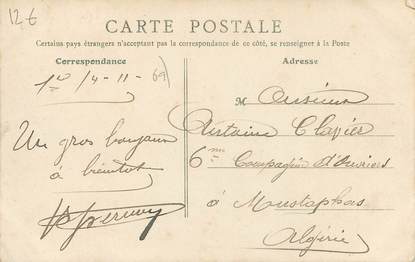 12€
CARTE POSTALE
Certains pays étrangers n'acceptant pas la correspondance de ce côté, se renseigner à la Poste
Correspondance
Adresse
14-11-09
Un gros bonjour
à bientot
M onsieur
Antoine Clavier
6me Compagnie d'Ouvriers
à Moustaphas
Algérie